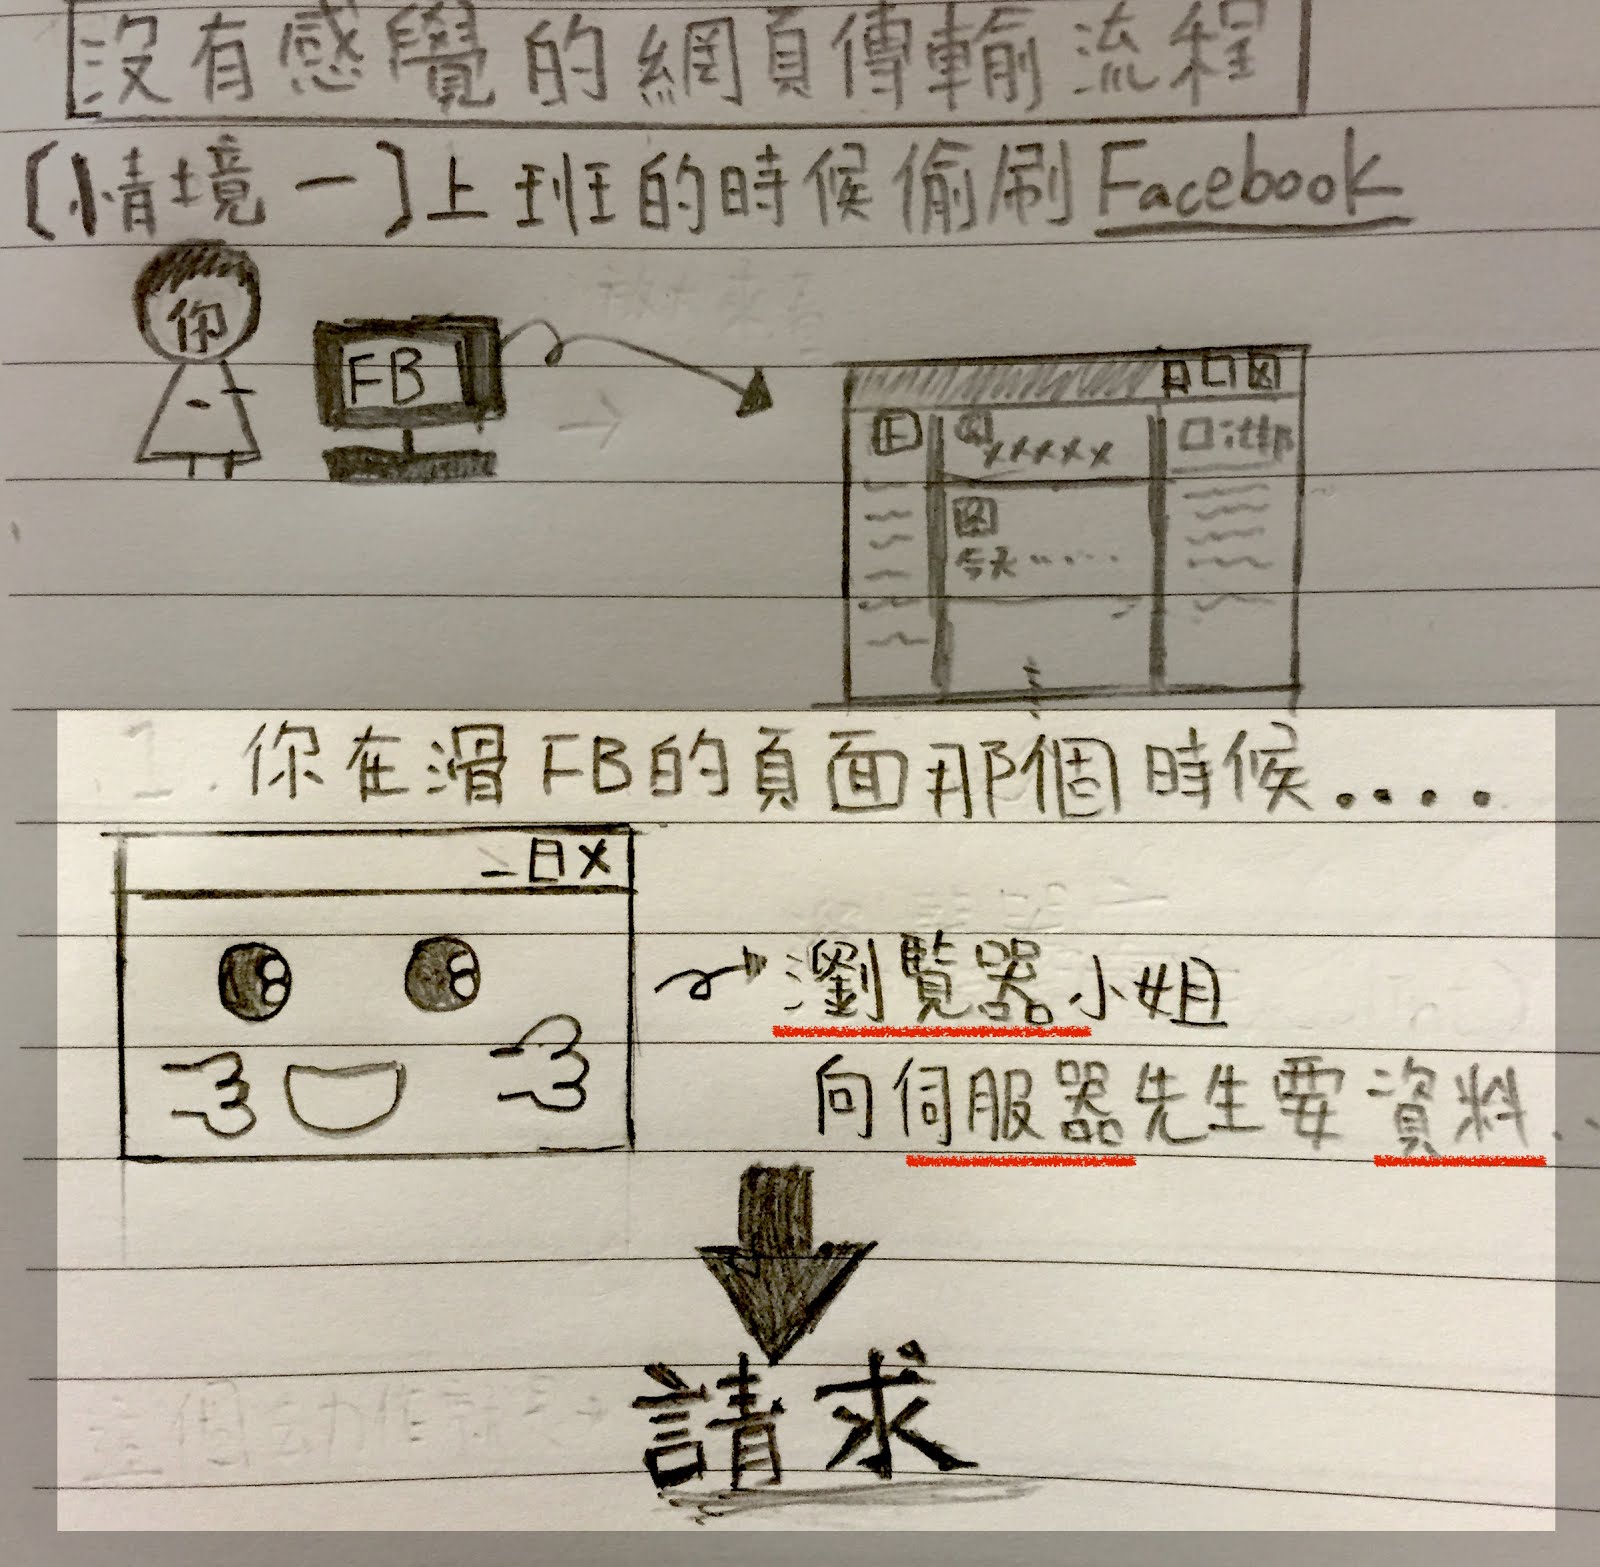 沒有感覺的網頁傳輸流程
〔情境一〕上班的時候偷刷Facebook
你
FB
xxxxx
今天……
1. 你在滑FB的頁面那個時候....
瀏覽器小姐
向伺服器先生要資料..
請求